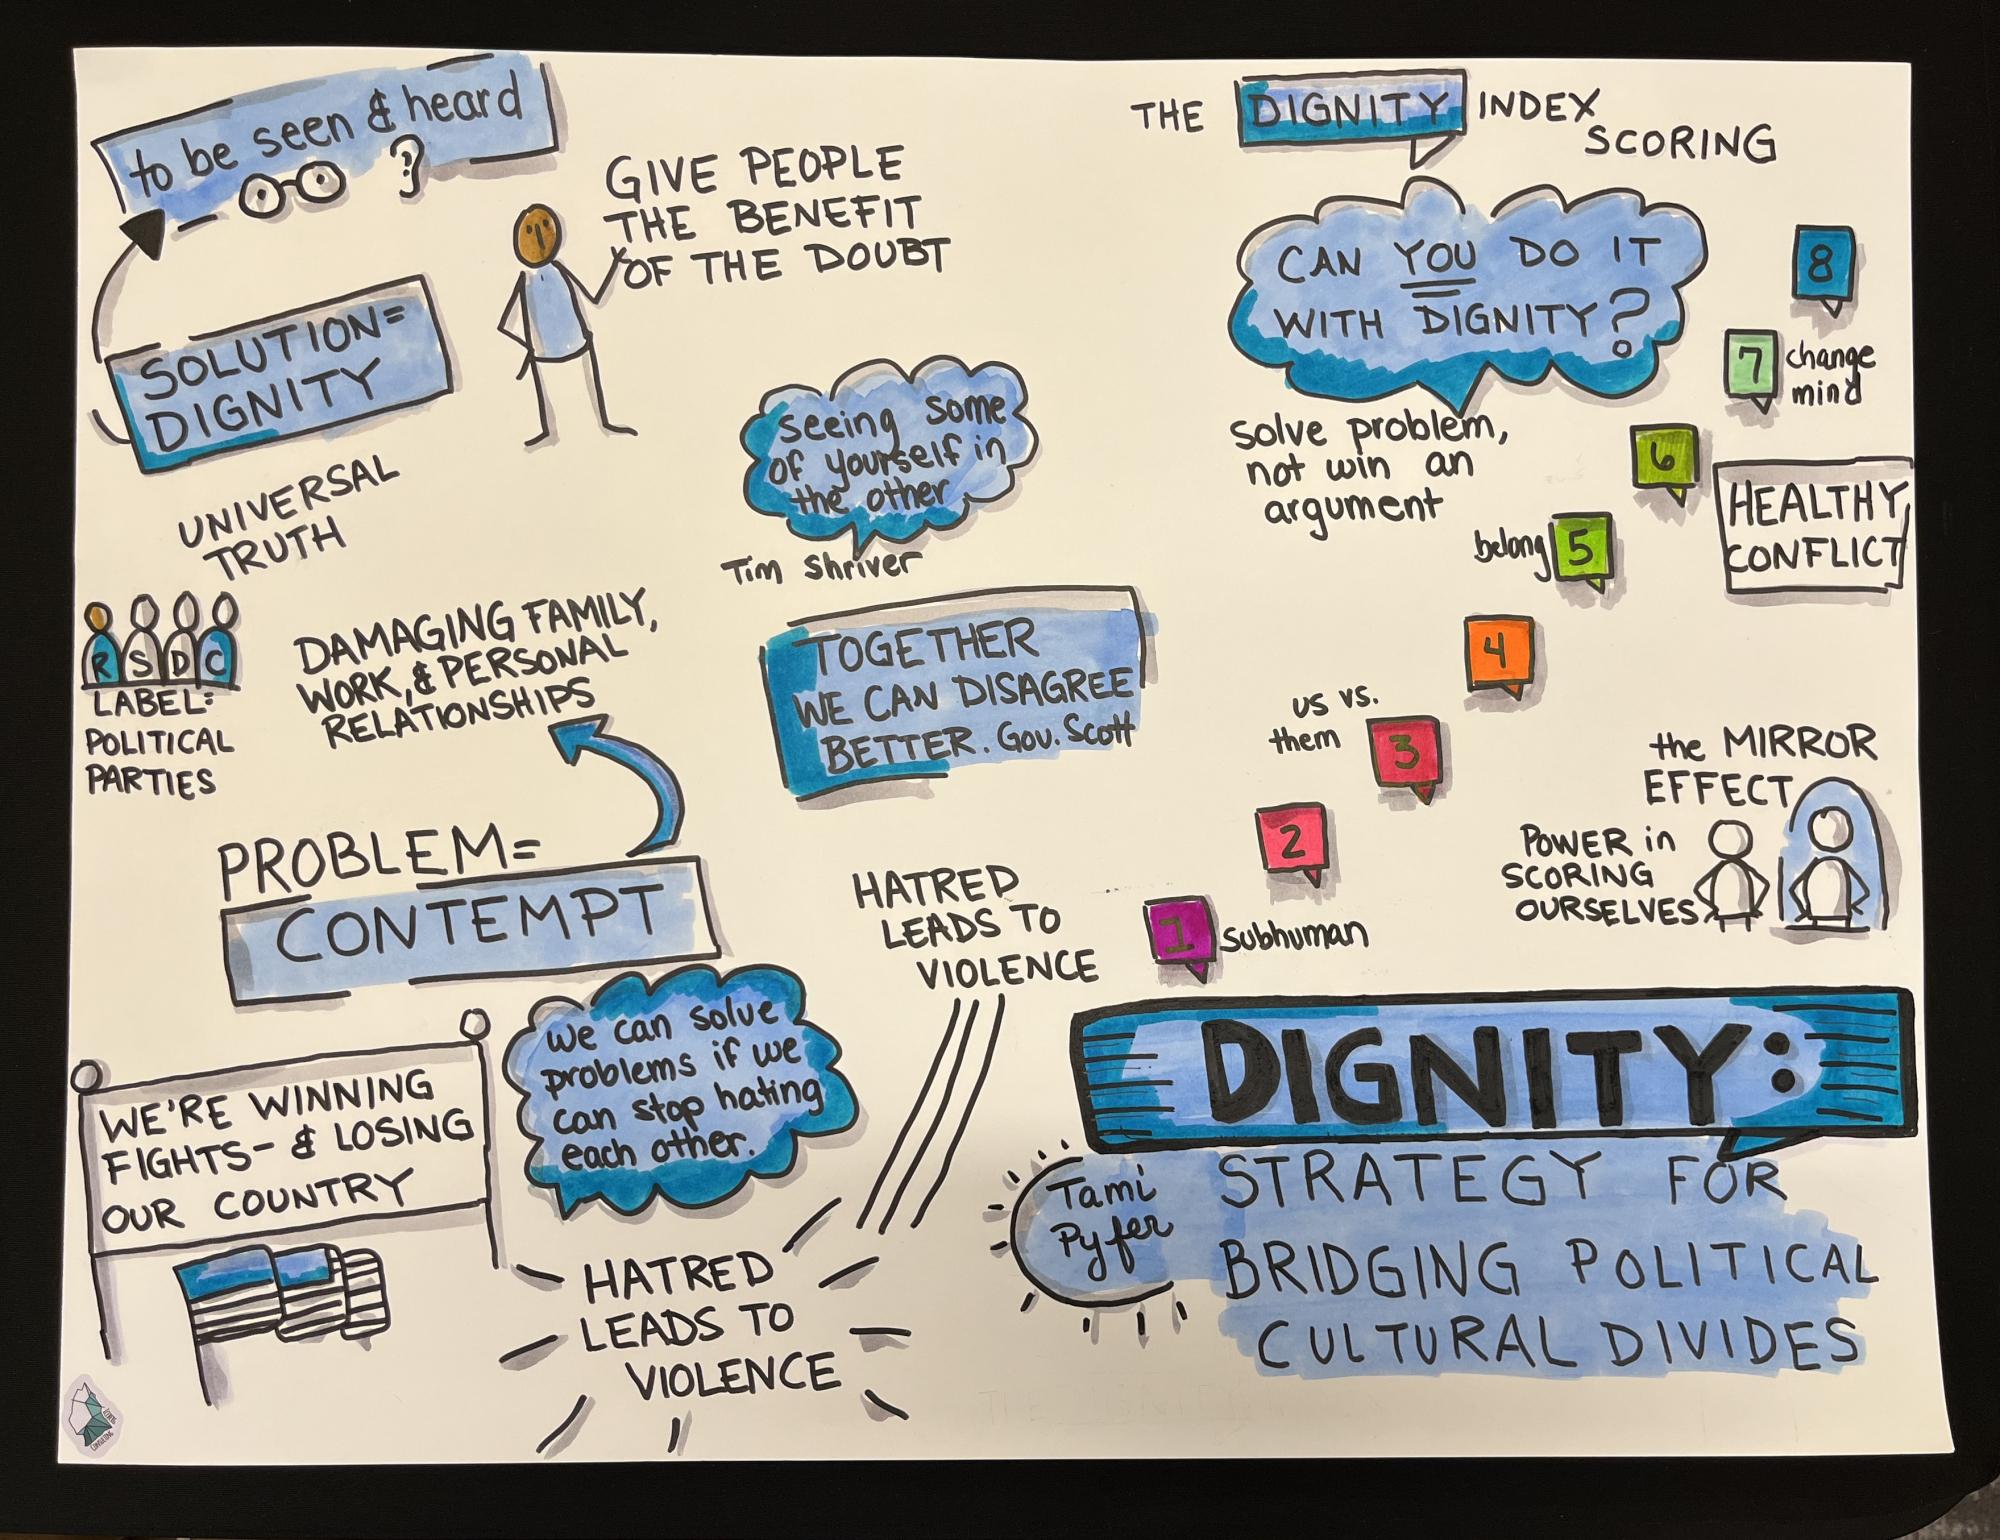 to be seen & heard
GIVE PEOPLE
THE BENEFIT
OF THE DOUBT
SOLUTION=
DIGNITY
UNIVERSAL
TRUTH
seeing some
of yourself in
the other
Tim Shriver
R S D C
LABEL:
POLITICAL
PARTIES
DAMAGING FAMILY,
WORK, & PERSONAL
RELATIONSHIPS
TOGETHER
WE CAN DISAGREE
BETTER. Gov. Scott
PROBLEM=
CONTEMPT
WE'RE WINNING
FIGHTS- & LOSING
OUR COUNTRY
we can solve
problems if we
can stop hating
each other.
HATRED
LEADS TO
VIOLENCE
HATRED
LEADS TO
VIOLENCE
THE DIGNITY INDEX
SCORING
CAN YOU DO IT
WITH DIGNITY?
solve problem,
not win an
argument
8
7 change
mind
6
HEALTHY
CONFLICT
belong 5
4
us vs.
them 3
2
1 subhuman
the MIRROR
EFFECT
POWER in
SCORING
OURSELVES
DIGNITY:
STRATEGY FOR
BRIDGING POLITICAL
CULTURAL DIVIDES
Tami
Pyfer
CONSULTING